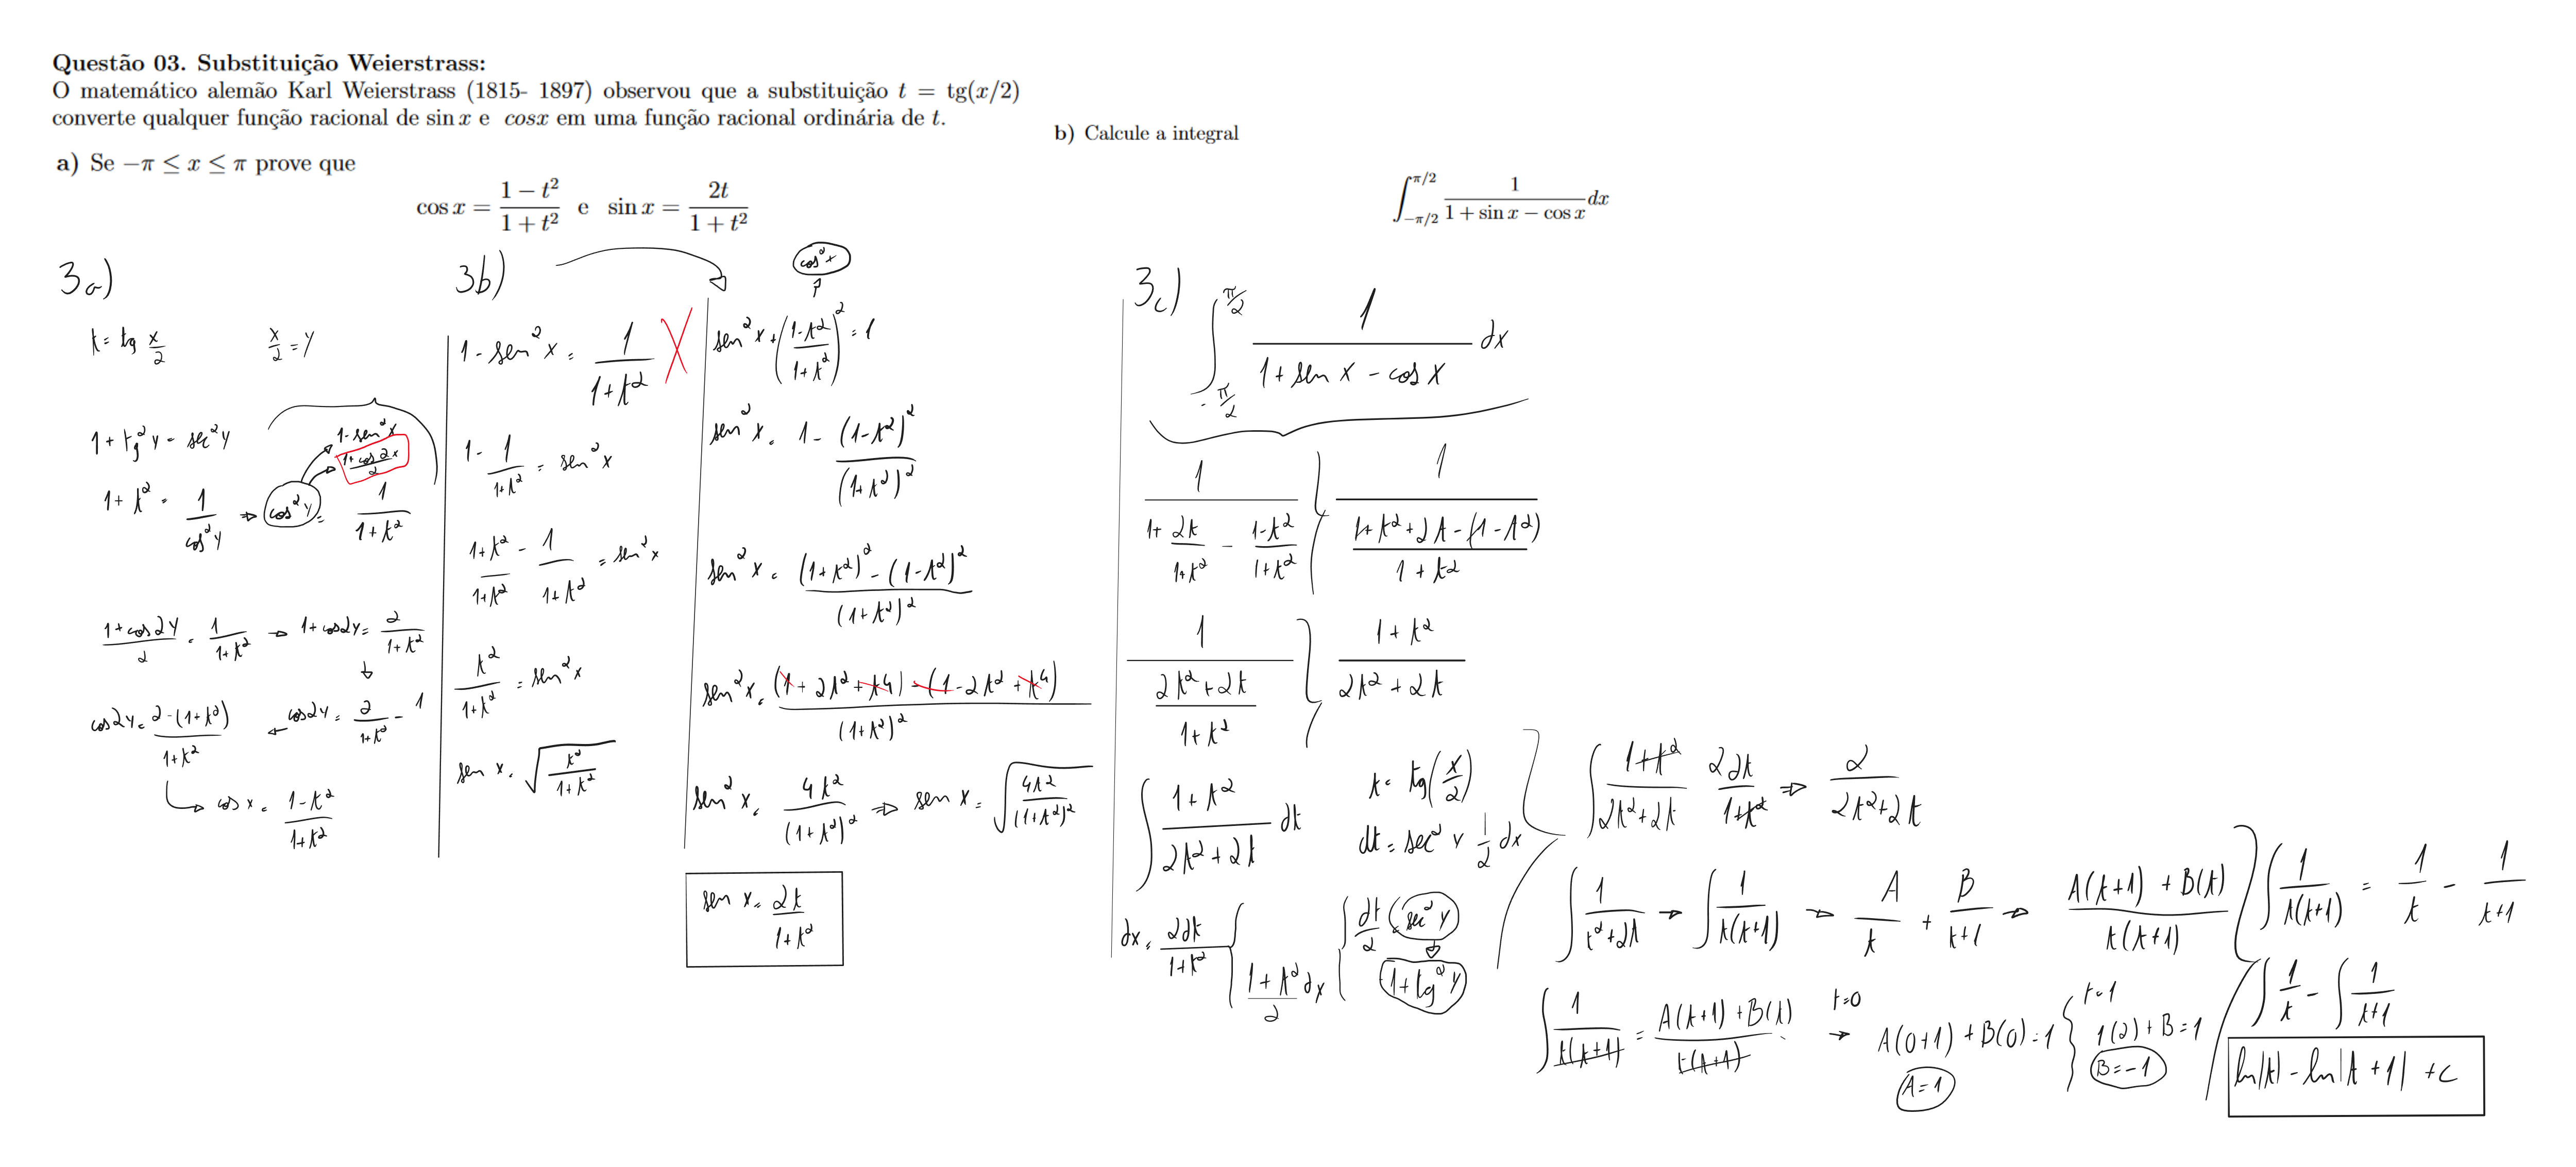 Questão 03. Substituição Weierstrass:
O matemático alemão Karl Weierstrass (1815- 1897) observou que a substituição t = tg(x/2)
converte qualquer função racional de sin x e cosx em uma função racional ordinária de t.
a) Se −π ≤ x ≤ π prove que
cos x = (1 − t²)/(1 + t²) e sin x = 2t/(1 + t²)
b) Calcule a integral
∫_{−π/2}^{π/2} 1/(1 + sin x − cos x) dx
3a)
t = tg x/2
x/2 = y
1 + tg² y = sec² y
1 - sen² x
(1 + cos 2x)/2
1 + t² = 1/cos² y ⇒ cos² y = 1/(1 + t²)
(1 + cos 2y)/2 = 1/(1 + t²) → 1 + cos 2y = 2/(1 + t²)
↓
cos 2y = (2 - (1 + t²))/(1 + t²) ← cos 2y = 2/(1 + t²) - 1
↳ cos x = (1 - t²)/(1 + t²)
3b)
1 - sen² x = 1/(1 + t²) X
1 - 1/(1 + t²) = sen² x
(1 + t²)/(1 + t²) - 1/(1 + t²) = sen² x
t²/(1 + t²) = sen² x
sen x = √(t²/(1 + t²))
cos² x
↑
sen² x + ((1 - t²)/(1 + t²))² = 1
sen² x = 1 - (1 - t²)²/(1 + t²)²
sen² x = ((1 + t²)² - (1 - t²)²)/(1 + t²)²
sen² x = ((1 + 2t² + t⁴) - (1 - 2t² + t⁴))/(1 + t²)²
sen² x = 4t²/(1 + t²)² ⇒ sen x = √(4t²/(1 + t²)²)
sen x = 2t/(1 + t²)
3c)
∫_{-π/2}^{π/2} 1/(1 + sen x - cos x) dx
1/(1 + 2t/(1 + t²) - (1 - t²)/(1 + t²))
1/((1 + t² + 2t - (1 - t²))/(1 + t²))
1/((2t² + 2t)/(1 + t²))
(1 + t²)/(2t² + 2t)
∫ (1 + t²)/(2t² + 2t) dt
t = tg(x/2)
dt = sec² y 1/2 dx
dx = 2dt/(1 + t²)
(1 + t²)/2 dx
dt/2 = sec² y
↓
1 + tg² y
∫ (1 + t²)/(2t² + 2t) 2dt/(1 + t²) ⇒ 2/(2t² + 2t)
∫ 1/(t² + 2t) → ∫ 1/(t(t + 1)) → A/t + B/(t + 1) → (A(t + 1) + B(t))/(t(t + 1))
∫ 1/(t(t+1)) = (A(t+1) + B(t))/(t(t+1)) →
t=0
A(0+1) + B(0) = 1
A = 1
t=1
1(2) + B = 1
B = -1
∫ 1/(t(t+1)) = 1/t - 1/(t+1)
∫ 1/t - ∫ 1/(t+1)
ln|t| - ln|t + 1| + c